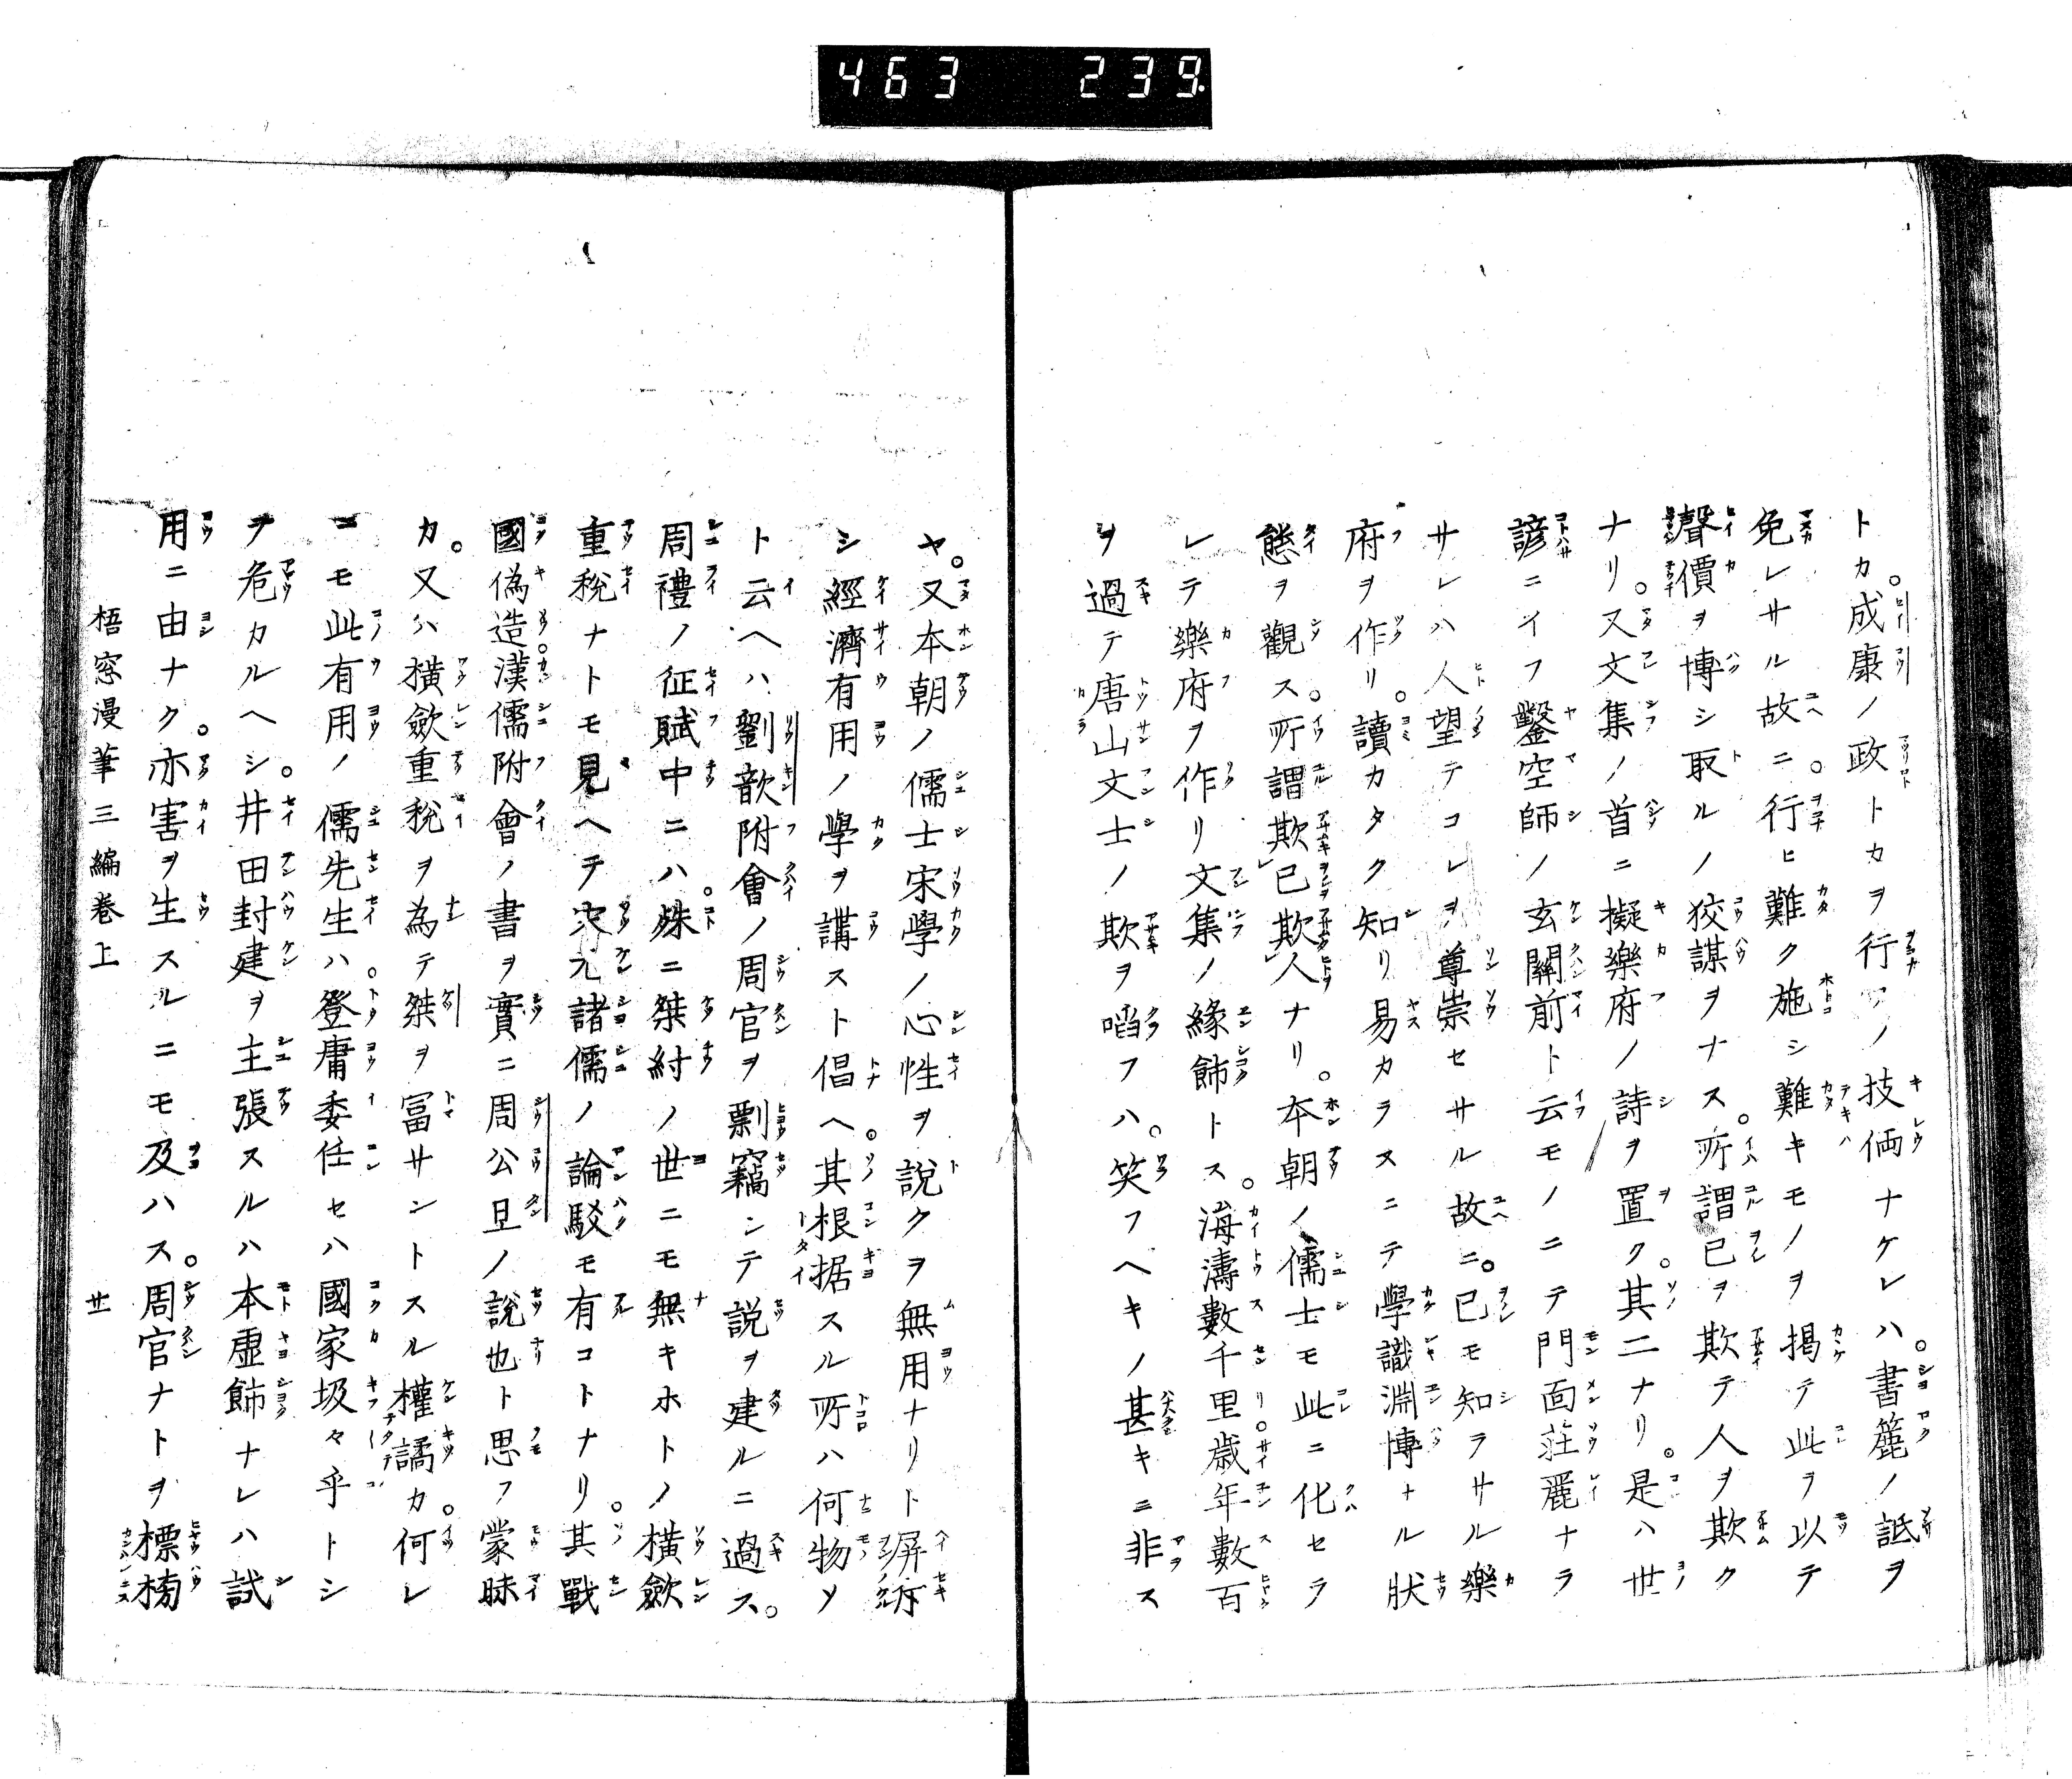 463 239
トカ成康ノ政トカヲ行フノ技倆ナケレハ。書簏ノ詆ヲ
免レサル故ニ。行ヒ難ク施シ難キモノヲ掲テ此ヲ以テ
聲價ヲ博シ取ルノ狡謀ヲナス。所謂已ヲ欺テ人ヲ欺ク
ナリ。又文集ノ首ニ擬樂府ノ詩ヲ置ク。其二ナリ。是ハ世
諺ニイフ鑿空師ノ玄關前ト云モノニテ門面莊麗ナラ
サレハ人望テコレヲ尊崇セサル故ニ。已モ知ラサル樂
府ヲ作リ。讀カタク知リ易カラスニテ學識淵博ナル狀
態ヲ觀ス。所謂欺已欺人ナリ。本朝ノ儒士モ此ニ化セラ
レテ樂府ヲ作リ文集ノ緣飾トス。海濤數千里。歲年數百
ヲ過テ唐山文士ノ欺ヲ啗フハ。笑フヘキノ甚キニ非ス
ヤ。又本朝ノ儒士宋學ノ心性ヲ說クヲ無用ナリト屏斥
シ經濟有用ノ學ヲ講スト倡ヘ。其根据スル所ハ何物ソ
ト云ヘハ劉歆附會ノ周官ヲ剽竊シテ說ヲ建ルニ過ス。
周禮ノ征賦中ニハ。殊ニ桀紂ノ世ニモ無キホトノ橫斂
重稅ナトモ見ヘテ宋元諸儒ノ論駁モ有コトナリ。其戰
國偽造。漢儒附會ノ書ヲ實ニ周公旦ノ說也ト思フ蒙昧
カ。又ハ橫斂重稅ヲ為テ桀ヲ冨サントスル權譎カ。何レ
ニモ此有用ノ儒先生ハ。登庸委任セハ國家圾々乎トシ
ヲ危カルヘシ。井田封建ヲ主張スルハ本虛飾ナレハ試
用ニ由ナク。亦害ヲ生スルニモ及ハス。周官ナトヲ標榜
梧窓漫筆三編卷上 廿